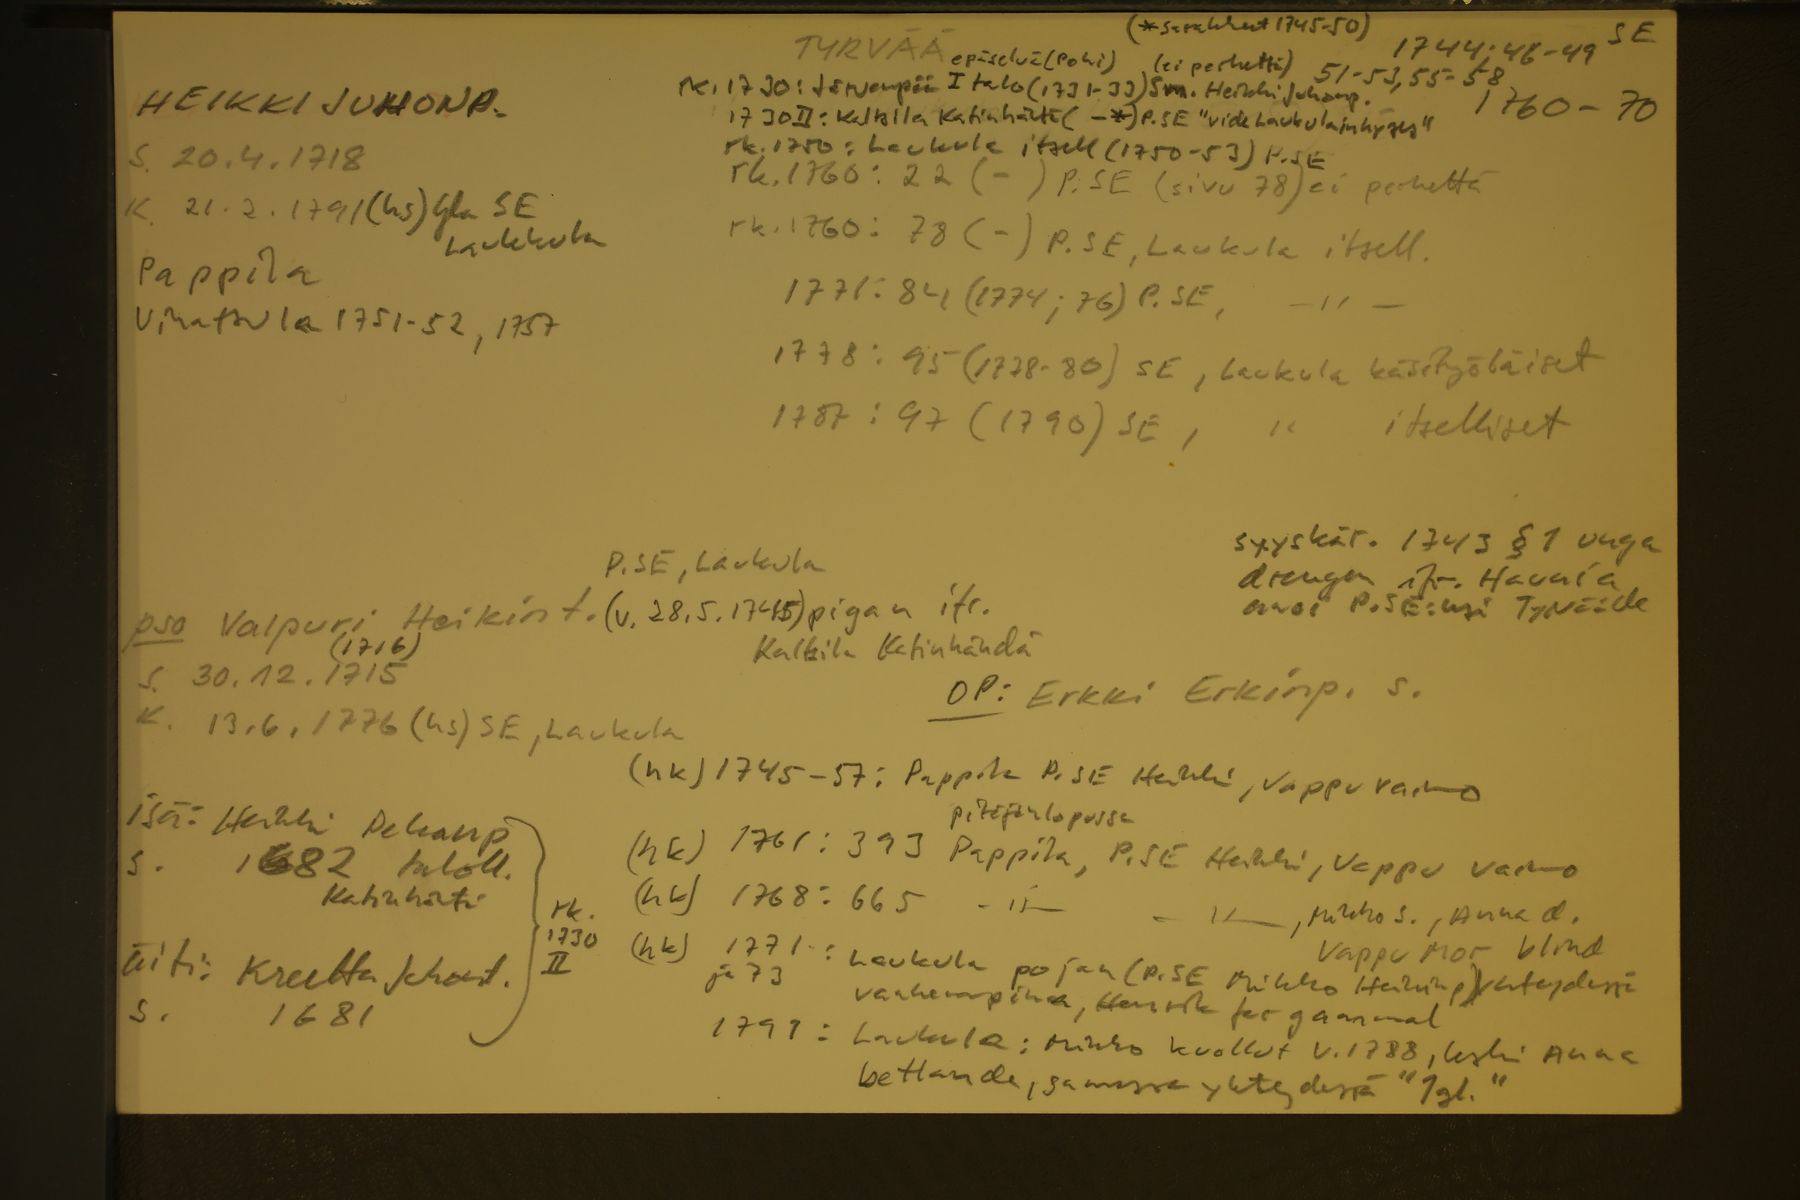 (*sarakkeet 1745-50)
SE
TYRVÄÄ
1744; 46-49
epäselvä (Pohi) (ei perhettä)
51-53, 55-58
HEIKKI JUHONP.
rk. 1730: Järvenpää I talo (1731-33) Sm. Heikki Juhonp.
1760-70
1730 II: Kaltila Katinhäntä ( - *) P.SE "vide Laukula
rk. 1750: Laukula itsell (1750-53) P.SE
S. 20.4.1718
rk. 1760: 22 (-) P.SE (sivu 78) ei perhettä
K. 21.2.1791 (hs) SE
Laukkula
rk. 1760: 78 (-) P.SE, Laukula itsell.
Pappila
1771: 84 (1774; 76) P.SE, -"-
Vinattula 1751-52, 1757
1778: 95 (1778-80) SE, Laukula käsityöläiset
1787: 97 (1790) SE, " itselliset
syyskär. 1743 § 1 unga
drengen ifr. Havaria
P.SE:ksi Tyrväälle
P.SE, Laukula
pso Valpuri Heikint. (v. 28.5.1745) pigan ifr.
Kaltila Katinhändä
(1716)
S. 30.12.1715
OP: Erkki Erkinp. s.
K. 13.6.1776 (hs) SE, Laukula
(hk) 1745-57: Pappila P.SE Heikki, Vappu vaimo
pitäjänlopussa
(hk) 1761: 393 Pappila, P.SE Heikki, Vappu vaimo
(hk) 1768: 665 -"- -"-, Mikko s., Anna d.
Vappu mor blind
(hk) 1771: Laukula pojan (P.SE Mikko Heikinp) yhteydessä
ja 73
vanhempina, Henrik far gammal
1791: Laukula: Mikko kuollut v. 1788, leski Anna
betlande, samassa yhteydessä
isä: Heikki
s. 1682 taloll.
Katinhäntä
äiti: Kreetta Juhont.
s. 1681
rk.
1730
II